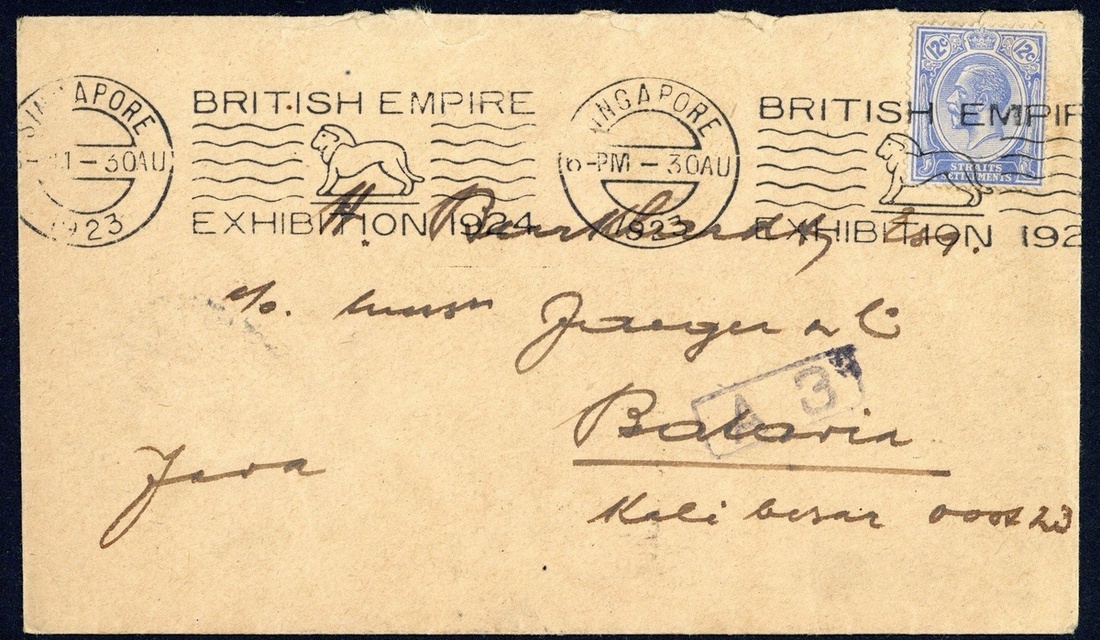 SINGAPORE
30AU
1923
BRITISH EMPIRE
EXHIBITION 1924
SINGAPORE
6-PM - 30AU
1923
BRITISH EMPIR
EXHIBITION 192
12c 12c
STRAITS
SETTLEMENTS
H. Burkhardt, Esq.
c/o. Messrs Jaeger & C
A 3
Batavia
Java
Kali besar oost 23